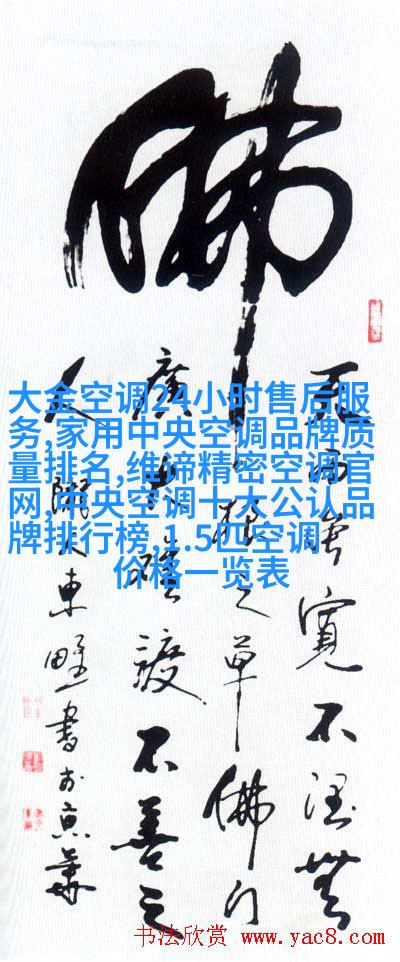 佛
天雨雖寬不潤無
根之草佛门
廣大難渡不善之
人
東野書於京華
大金空调24小时售后服
务,家用中央空调品牌质
量排名,维谛精密空调官
网,中央空调十大公认品
牌排行榜,1.5匹空调
价格一览表
书法欣赏 www.yac8.com